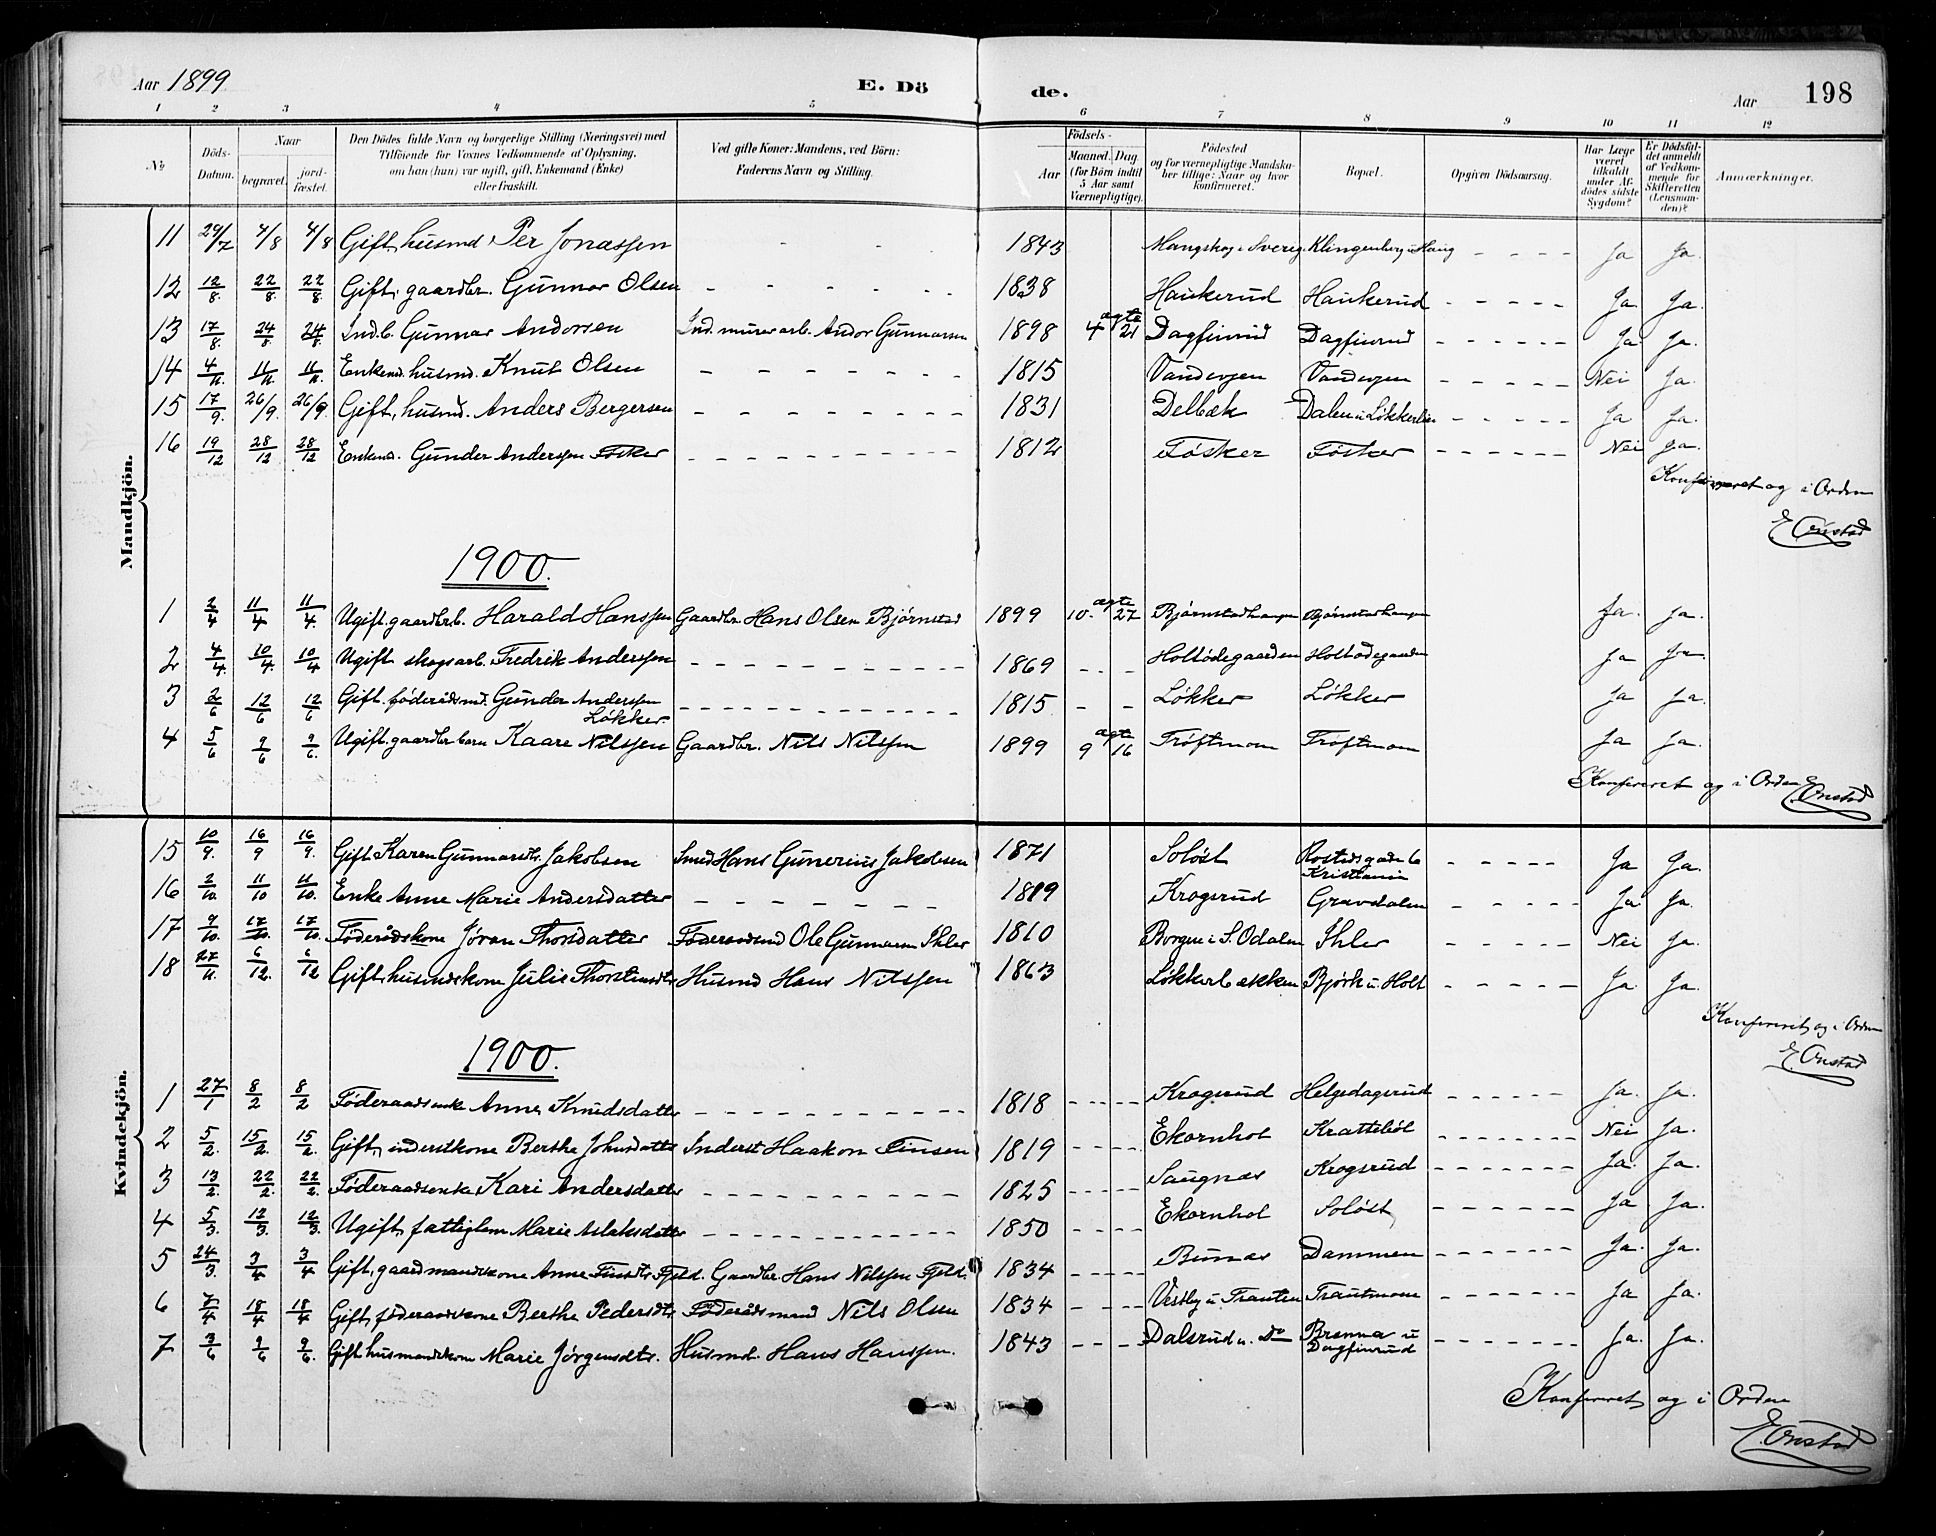 Aar 1899 E. Döde. Aar 198
1 2 3 4 5 6 7 8 9 10 11 12
No. Döds-Datum. Naar begravet. jordfæstet. Den Dödes fulde Navn og borgerlige Stilling (Næringsvei) med Tilföiende for Voxnes Vedkommende af Oplysning, om han (hun) var ugift, gift, Enkemand (Enke) eller fraskilt. Ved gifte Koner: Mandens, ved Börn: Faderens Navn og Stilling. Födsels- Aar Maaned. Dag. (for Börn indtil 5 Aar samt Værnepligtige). Födested og for værnepligtige Mandskaber tillige: Naar og hvor konfirmeret. Bopæl. Opgiven Dödsaarsag. Har Læge været tilkaldt under Afdödes sidste Sygdom? Er Dödsfaldet anmeldt af Vedkommende for Skifteretten (Lensmanden)? Anmærkninger.
Mandkjön.
11 29/7 4/8 4/8 Gift, husmd. Per Jonassen - - 1843 Mangskog i Sverig Klingenberg u. Haug - - - - Ja Ja.
12 12/8. 22/8. 22/8. Gift, gaardbr. Gunnar Olsen - - - - - 1838 Haukerud Haukerud - - - - - Ja Ja.
13 17/8. 24/8. 24/8. Indb. Gunnar Andorsen Ind. murerarb. Andor Gunnarsen 1898 4 ægte 21 Dagfinrud Dagfinrud - - - - - Ja Ja.
14 4/11. 11/11. 11/11. Enkemd. husmd. Knut Olsen - - - - - - - 1815 Vandergen Vandergen - - - - - Nei Ja.
15 17/9. 26/9. 26/9. Gift, husmd. Anders Bergersen - - - - - - - 1831 Delbæk Dalen u. Løkkerlien - - - - - Ja Ja.
16 19/12 28/12 28/12 Enkemd. Gunder Anderssen Fosker - - - - - - - - 1812 Føsker Føsker - - - - - - Nei Ja.
Konfereret og i Orden
E. Onstad
1900.
1 2/4 11/4 11/4. Ugift. gaardbrb. Harald Hanssen Gaardbr. Hans Olsen Bjørnstad 1899 10. ægte 27 Bjørnstadhaugen Bjørnstadhaugen Ja. Ja.
2 4/4. 10/4. 10/4 Ugift skogsarb. Fredrik Anderssen - - - - - - - - - - 1869 - - - Holtødegaarden Holtødegaarden Ja Ja.
3 2/6 12/6 12/6 Gift. føderådsmd. Gunder Anderssen Løkker. - - - - - - - - - - - 1815 - - Løkker Løkker Ja Ja.
4 5/6 9/6 9/6. Ugift. gaardbr. barn Kaare Nilssen Gaardbr. Nils Nilssen 1899 9 ægte 16 Trøftmom Trøftmom Ja Ja.
Konfereret og i Orden E. Onstad
Kvindekjön.
15 10/9. 16/9 16/9. Gift Karen Gunnarsdtr. Jakobsen Smed Hans Gunerius Jakobsen 1871 Soløst Rostedsgade 6 Kristiania - - - - - Ja Ja.
16 2/10. 11/10 11/10. Enke Anne Marie Andersdatter - - - - - - - 1819 Krogsrud Gravdalen - - - - - Ja Ja.
17 9/10. 17/10. 17/10. Føderådskone Jøran Thorsdatter Føderaadsmd Ole Gunnarsen Ihler 1810 Borgen i S. Odalen Ihler - - - - - Nei Ja.
18 27/11. 6/12. 6/12 Gift, husmdskone Julie Thorstensdtr Husmd Hans Nilssen 1863 Løkkerbækken Bjørk u. Holt - - - - - Ja Ja.
Konfereret og i Orden
E. Onstad
1900.
1 27/1 8/2 8/2 Føderaadsenke Anne Knudsdatter - - - - - - - - - - 1818 - - - - Krogsrud Helgedagsrud - - - - - - Ja. Ja.
2 5/2. 15/2. 15/2. Gift, inderstkone Berthe Johnsdatter Inderst Haakon Finsen 1819 - - - - Ekornhol Krattebøl - - - - - - - Nei Ja.
3 13/2. 22/2. 22/2. Føderaadsenke Kari Andersdatter - - - - - - - - - - 1825 - - - - Saugnæs Krogsrud - - - - - - - Ja. Ja.
4 5/3. 12/3 12/3. Ugift, fattiglem Marie Aslaksdatter - - - - - - - - - - 1850 - - - - Ekornhol Soløst - - - - - - Ja Ja.
5 24/3. 3/4 3/4 Gift, gaardmandskone Anne Finsdtr Fjeld. Gaardbr. Hans Nilssen Fjeld. 1834 - - - - Bunæs Dammen - - - - - - - Ja. Ja.
6 7/4 18/4 18/4 Gift, føderaadskone Berthe Pedersdtr Føderådsmand Nils Olsen 1834 - - - - Vestby u. Trauten Trautmom - - - - - - Ja Ja.
7 3/6 9/6 9/6. Gift husmandskone Marie Jørgensdtr. Husmd. Hans Hanssen. 1843 - - - - Dalsrud u. Do Brenna u Dagfinrud - - - - - - Ja. Ja.
Konfereret og i Orden
E. Onstad